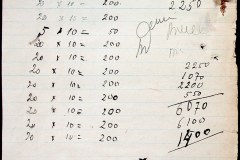 20 x 10 = 200 2250
20 x 10 = 200
5 x 10 = 50
20 x 10 = 200
20 x 10 = 200
20 x 10 = 200 2250
20 x 10 = 200 1070
20 x 10 = 200 2200
20 x 10 = 200 550
20 x 10 = 200 6070
20 x 10 = 200 6100
20 x 10 = 200 1400